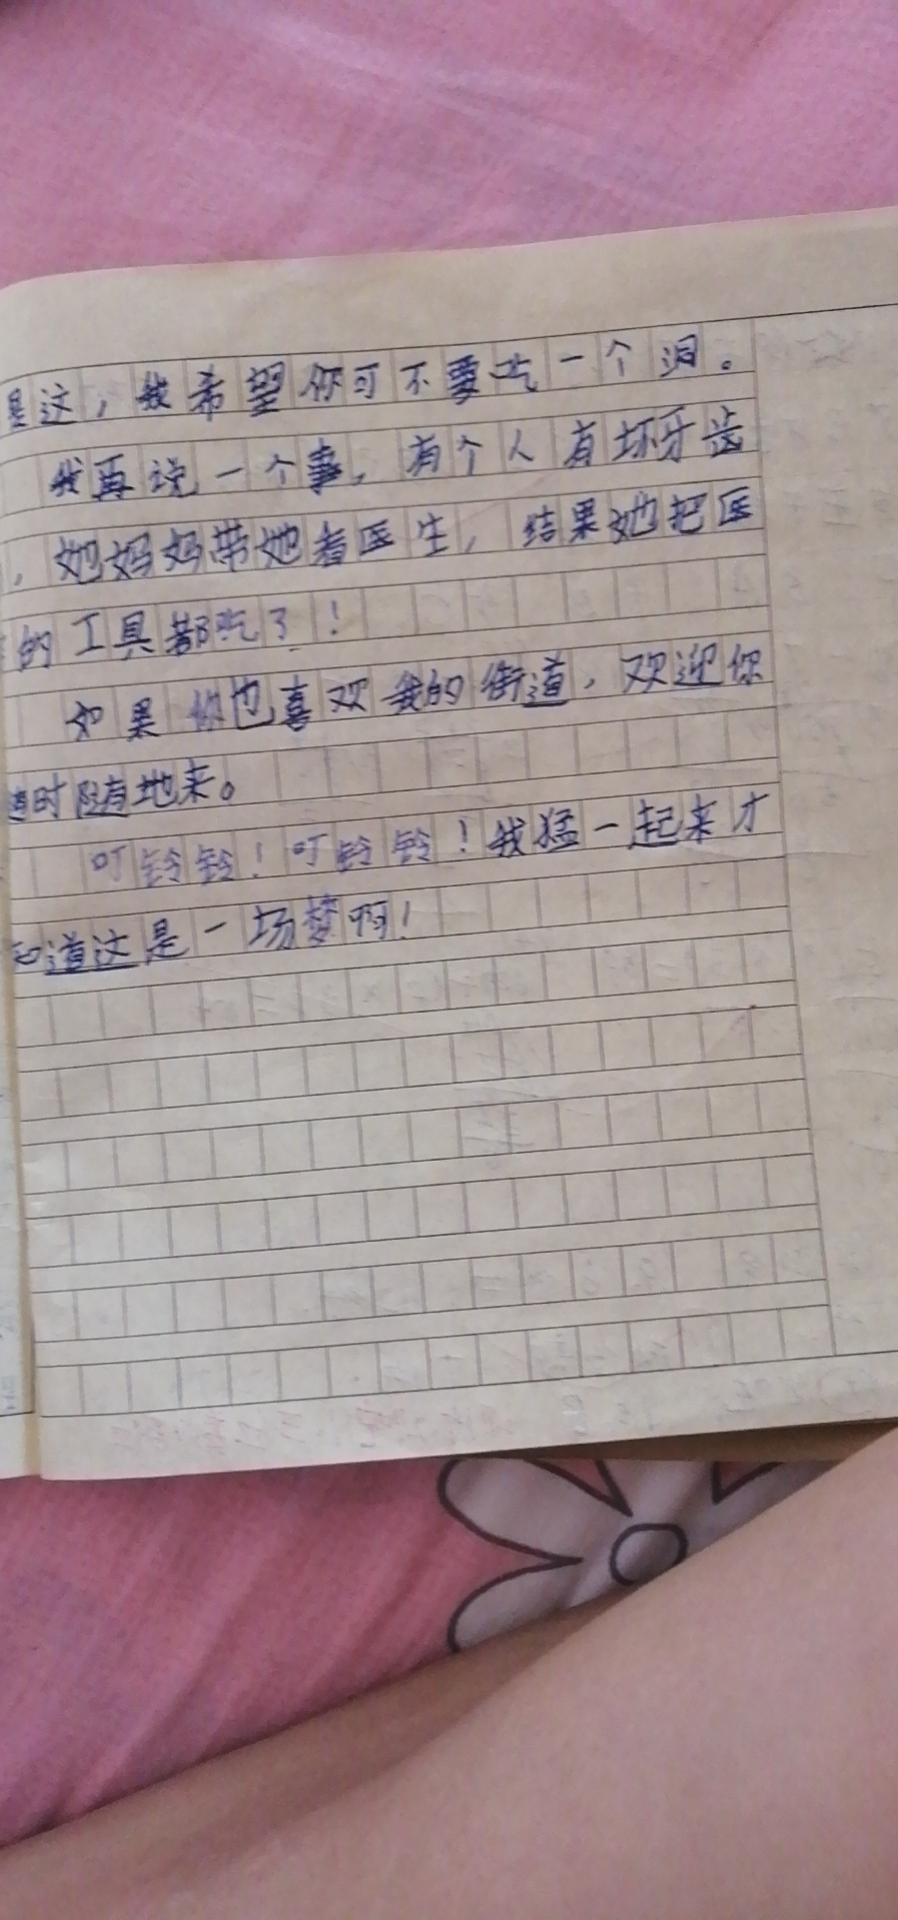 是这，我希望你可不要吃一个洞。
我再说一个事，有个人有坏牙齿
，她妈妈带她看医生，结果她把医
的工具都吃了！
如果你也喜欢我的街道，欢迎你
随时随地来。
叮铃铃！叮铃铃！我猛一起来才
知道这是一场梦啊！